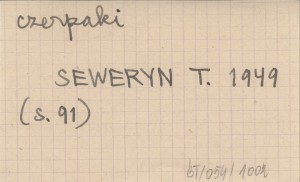 czerpaki
SEWERYN T. 1949
(s. 91)
ET/054/1001